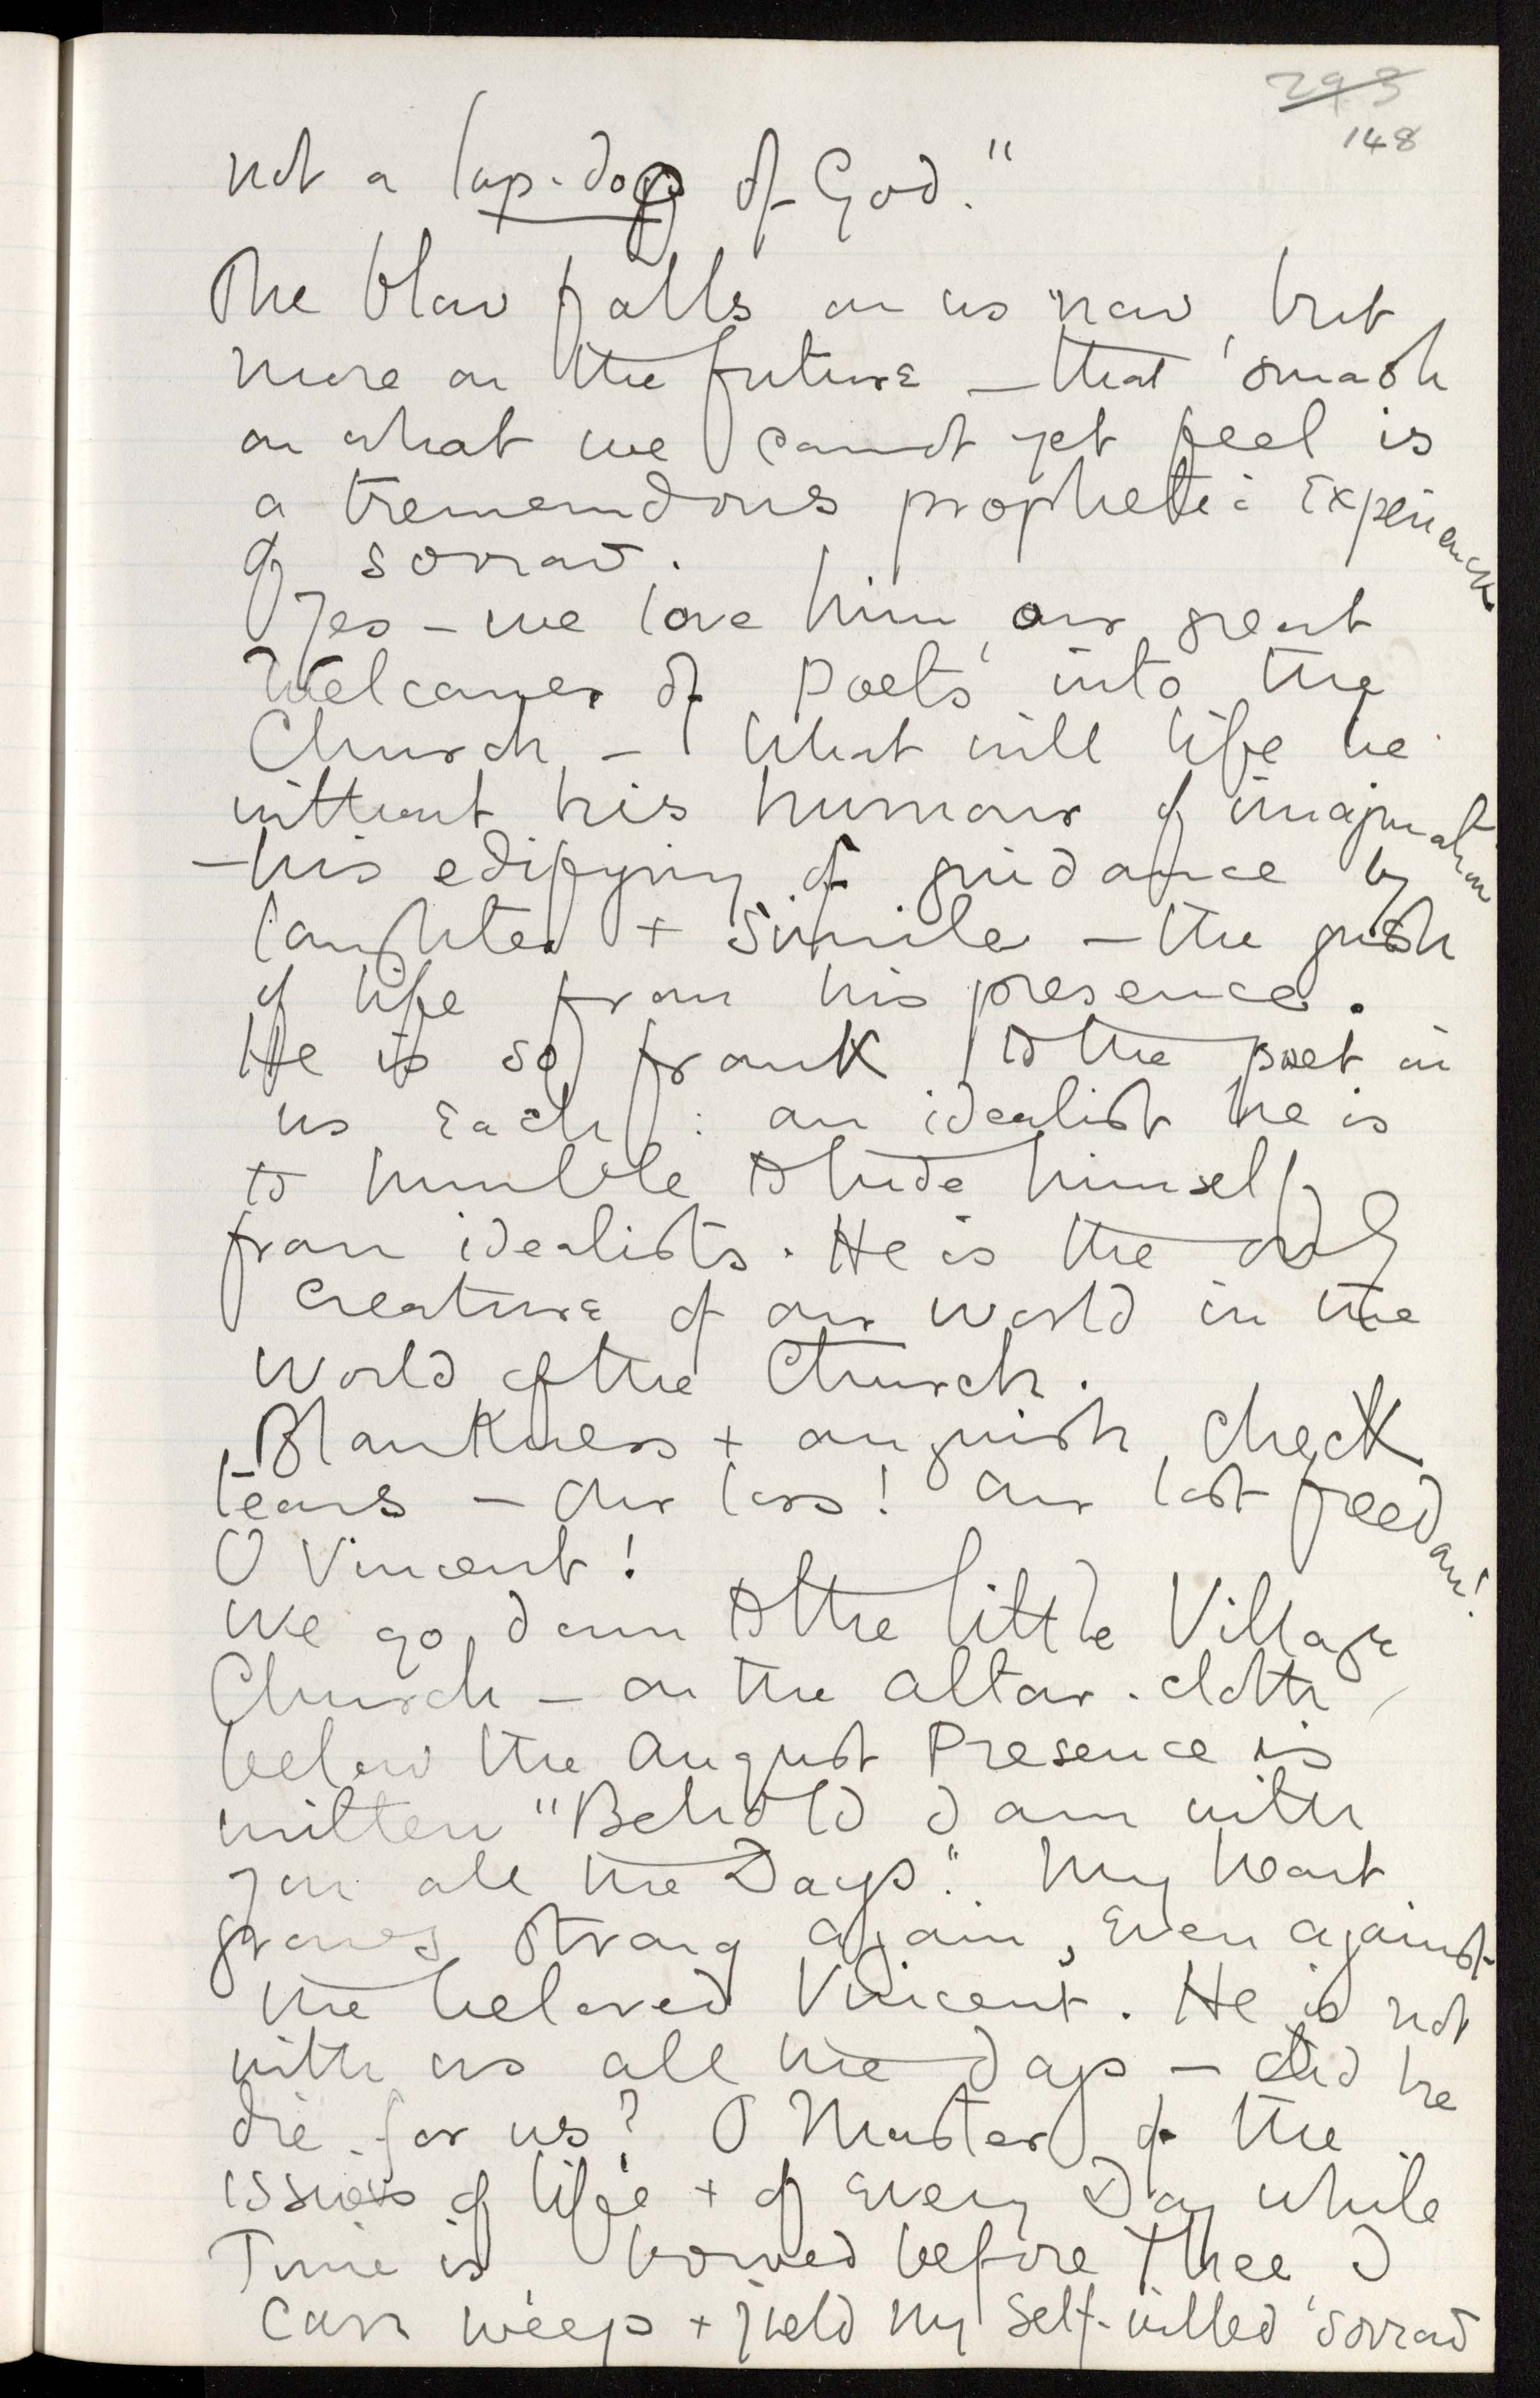 295
148
not a lap-dog of God."
The blow falls on us now, but
more on the future — that smash
on what we cannot yet feel is
a tremendous prophetic experience
of sorrow.
Yes — we love him, our great
Welcomer of Poets into the
Church — What will life be
without his humour of imagination
— his edifying of guidance by
laughter + simile — the gush
of life from his presence.
He is so frank to the poet in
us each : an idealist he is
to humble to hide himself
from idealists. He is the only
creature of our world in the
World of the Church.
Blankness + anguish, check
tears — Our loss! Our lost freedom!
O Vincent!
We go down to the little Village
Church — on the altar-cloth,
below the August Presence is
written "Behold I am with
you all the Days." My heart
grows strong again, even against
the beloved Vincent. He is not
with us all the days — did he
die for us? O Master of the
issues of life + of Every Day while
Time is, bowed before Thee I
can weep + yield my self-willed sorrow